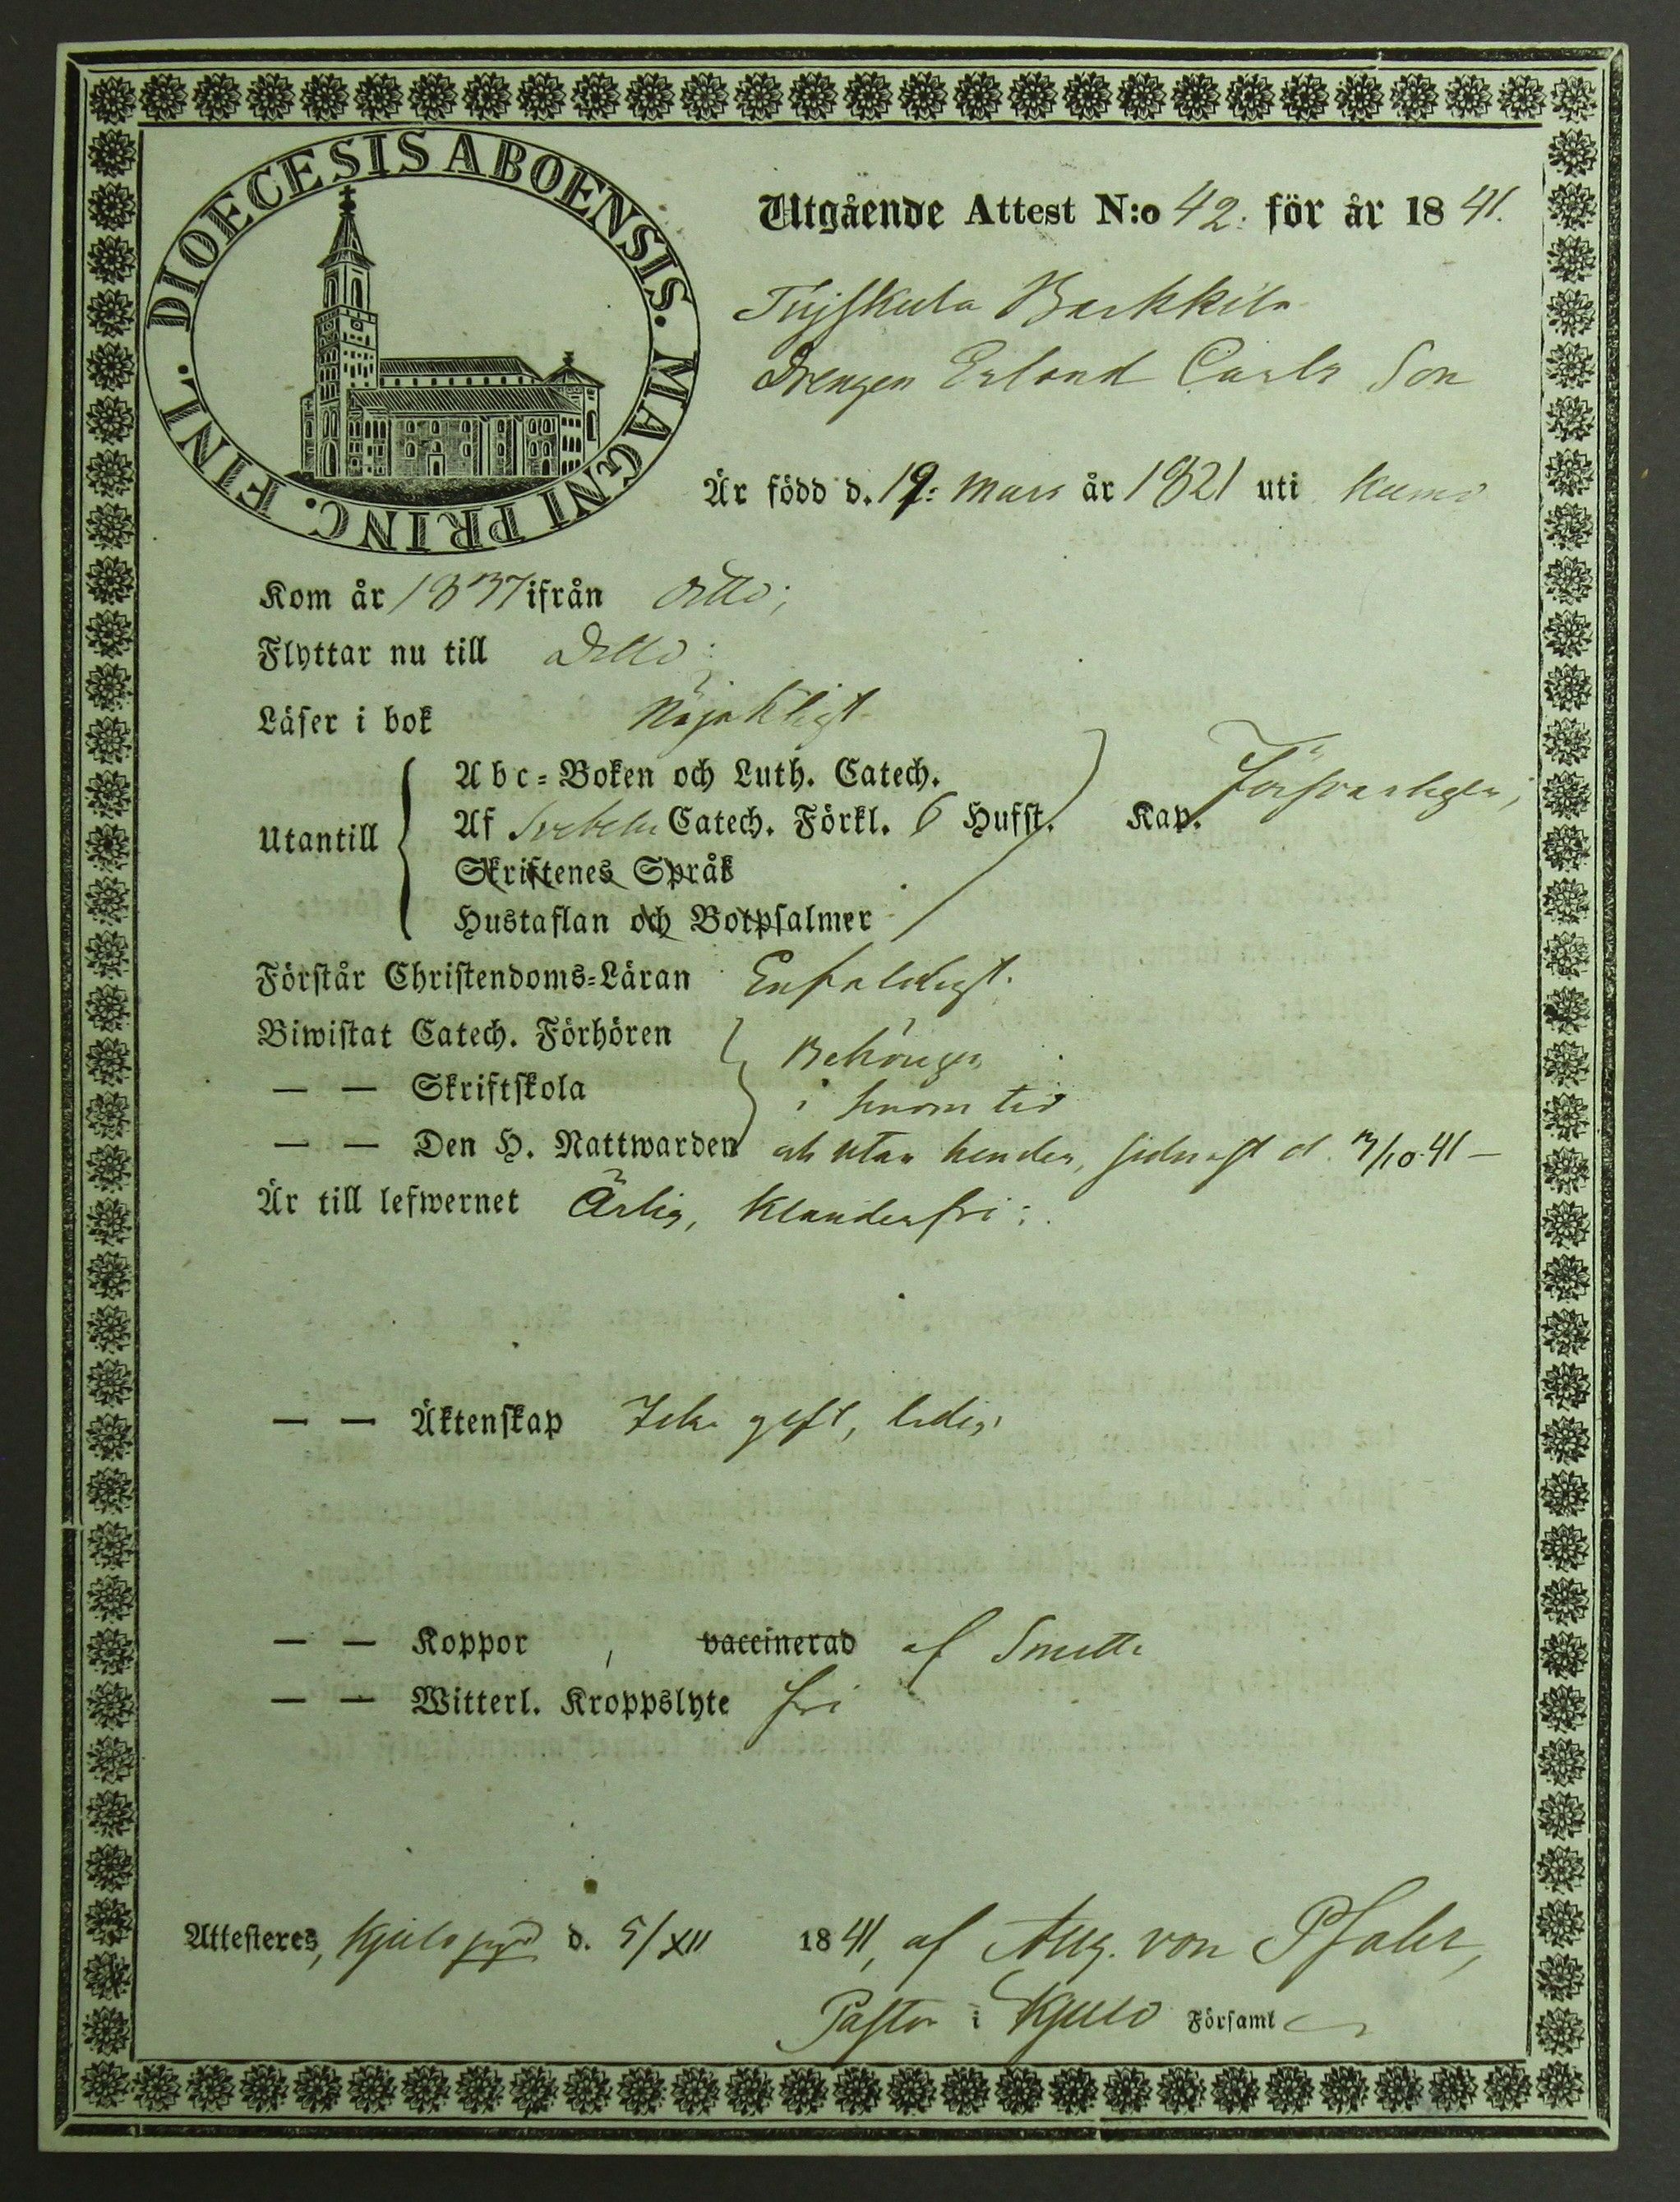 DIOECESIS ABOENSIS. MAGNI PRINC. FINL.
Utgående Attest N:o 42. för år 1841.
Drengen Erland Carls Son
Är född d. 19: Mars år 1821 uti Kumo
Kom år 1837 ifrån ditto;
Flyttar nu till Ditto:
Läser i bok Nöjaktligt
Utantill
Abc-Boken och Luth. Catech.
Af Svebelii Catech. Förkl. 6 Hufst. Kap. Försvarligen;
Skriftenes Språk
Hustaflan och Botpsalmer
Förstår Christendoms-Läran Enfaldigt.
Biwistat Catech. Förhören Behörigen
— — Skriftskola i sinom tid
— — Den H. Nattwarden och utan hinder, sednast d. 3/10 41 —
Är till lefwernet Ärlig, Klanderfri:
— — Äktenskap Icke gift, ledig
— — Koppor, vaccinerad af Smitta
— — Witterl. Kroppslyte fri
Attesteres, d. 5/XII 1841, af Aug. von Pfaler,
Pastor i Kjulo Församl